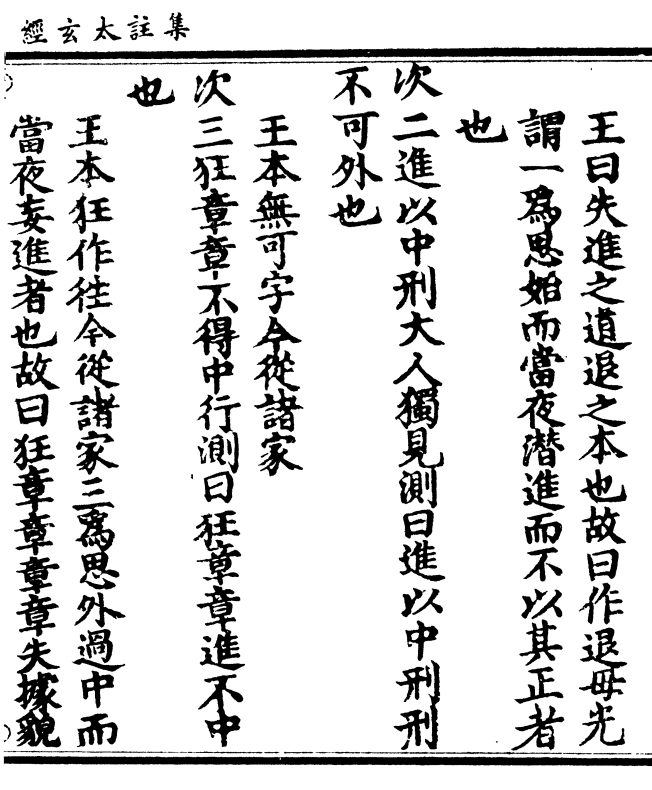 集註太玄經
王曰失進之道退之本也故曰作退母光
謂一爲思始而當夜潛進而不以其正者
也
次二進以中刑大人獨見測曰進以中刑刑
不可外也
王本無可字今從諸家
次三狂章章不得中行測曰狂章章進不中
也
王本狂作徃今從諸家三爲思外過中而
當夜妄進者也故曰狂章章章章失據貌